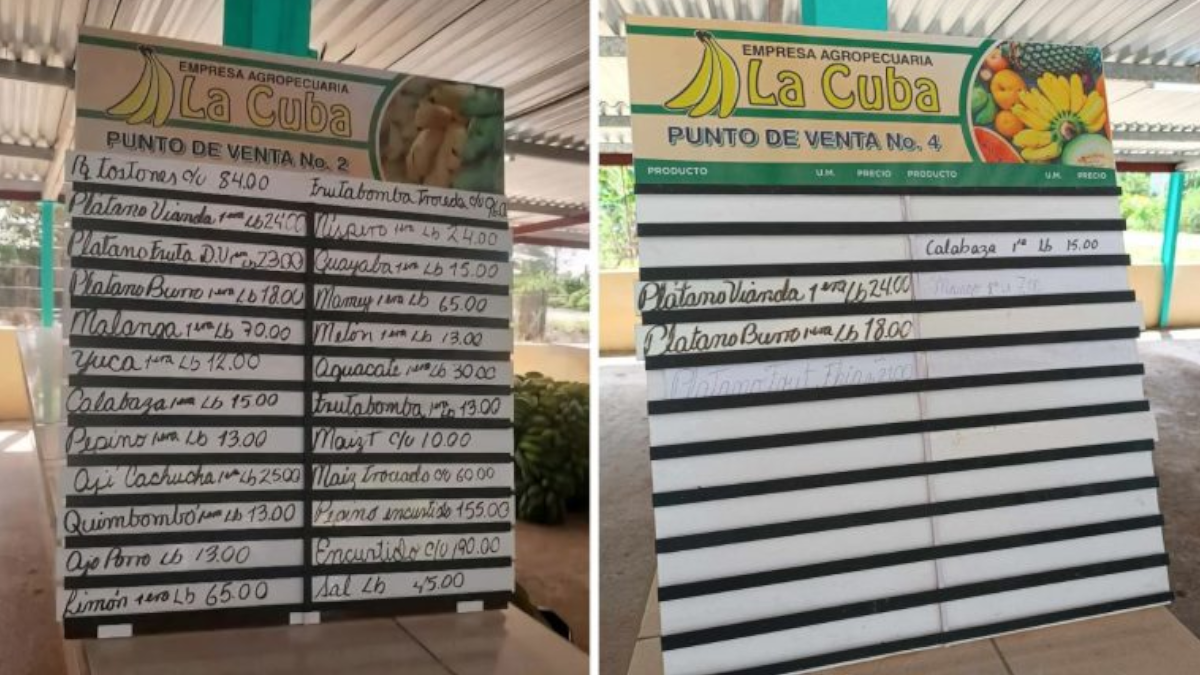 EMPRESA AGROPECUARIA
La Cuba
PUNTO DE VENTA No. 2
Pq tostones c/u 84.00
frutabomba Troceada c/u
Platano Vianda 1era Lb 24.00
Platano Fruta D.V 1era Lb 23.00
Platano Burro 1era Lb 18.00
Malanga 1era Lb 70.00
Yuca 1era Lb 12.00
Calabaza 1era Lb 15.00
Pepino 1era Lb 13.00
Ají Cachucha 1era Lb 25.00
Quimbombó 1era Lb 13.00
Ajo Porro Lb 13.00
Limón 1era Lb 65.00
Níspero 1era Lb 24.00
Guayaba 1era Lb 15.00
Mamey 1era Lb 65.00
Melón 1era Lb 13.00
Aguacate 1era Lb 30.00
frutabomba 1era Lb 13.00
Maiz T c/u 10.00
Maiz trociado c/u 60.00
Pepino encurtido 155.00
Encurtido c/u 190.00
Sal Lb 45.00
EMPRESA AGROPECUARIA
La Cuba
PUNTO DE VENTA No. 4
PRODUCTO U.M. PRECIO PRODUCTO U.M. PRECIO
Calabaza 1ra Lb 15.00
Plátano Vianda 1era Lb 24.00
Platano Burro 1era Lb 18.00